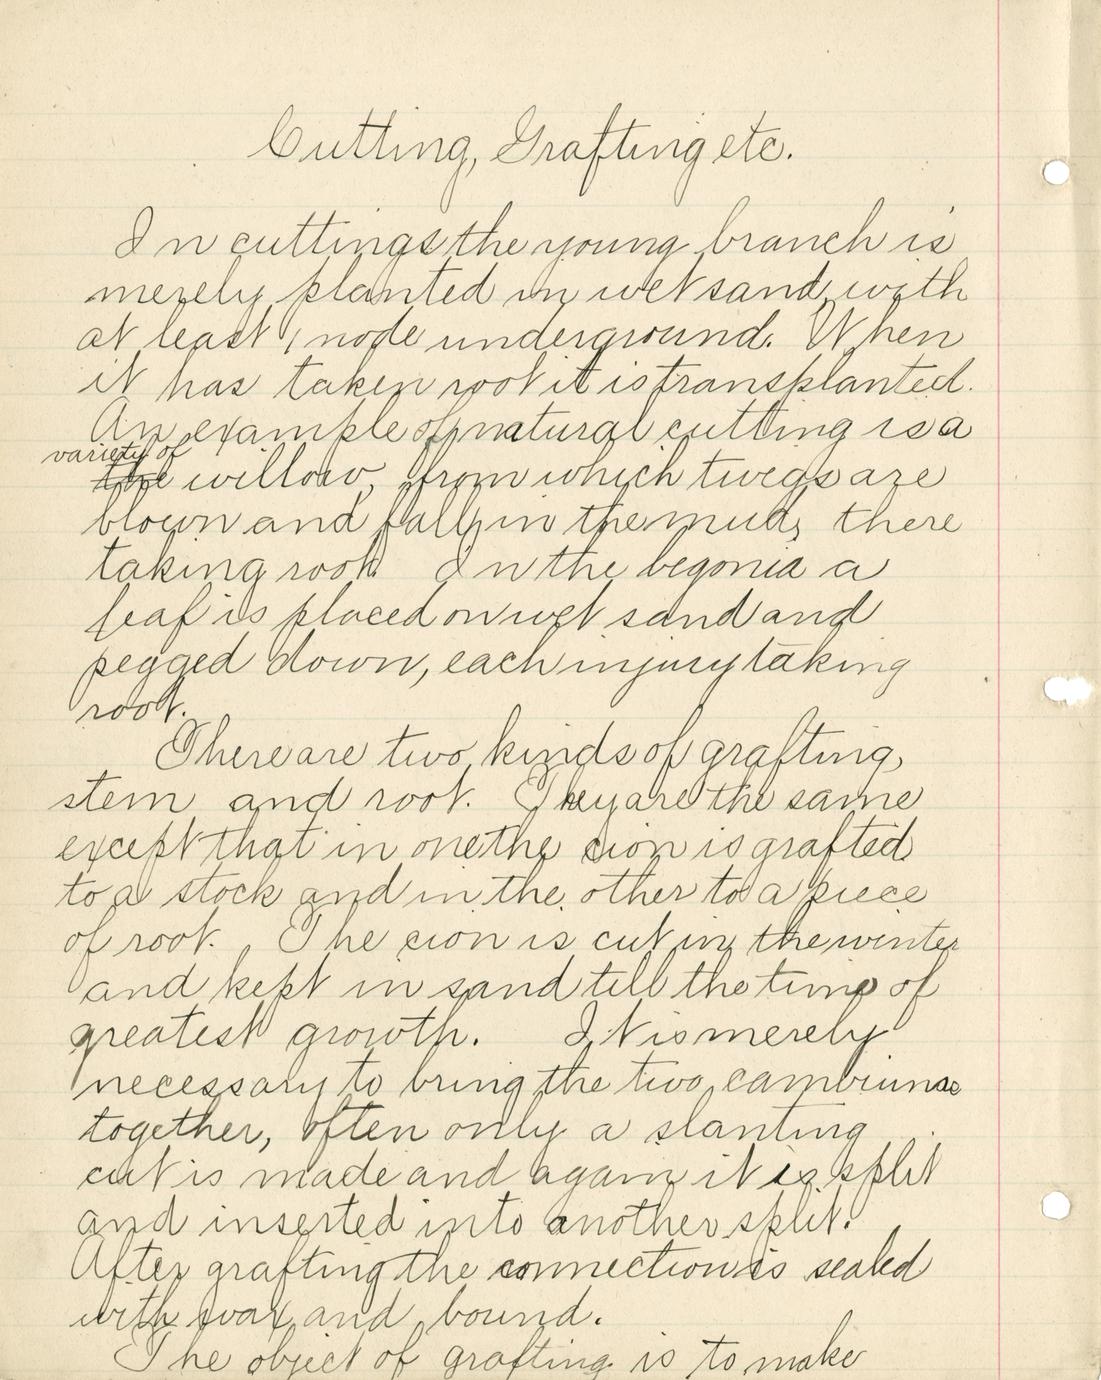 Cutting, Grafting etc.
In cuttings the young branch is
merely planted in wet sand, with
at least 1 node underground. When
it has taken root it is transplanted.
An example of natural cutting is a
variety of
the willow, from which twigs are
blown and fall in the mud, there
taking root. In the begonia a
leaf is placed on wet sand and
pegged down, each injury taking
root.
There are two kinds of grafting,
stem and root. They are the same
except that in one the cion is grafted
to a stock and in the other to a piece
of root. The cion is cut in the winter
and kept in sand till the time of
greatest growth. It is merely
necessary to bring the two cambiums
together, often only a slanting
cut is made and again it is split
and inserted into another split.
After grafting the connection is sealed
with wax and bound.
The object of grafting is to make